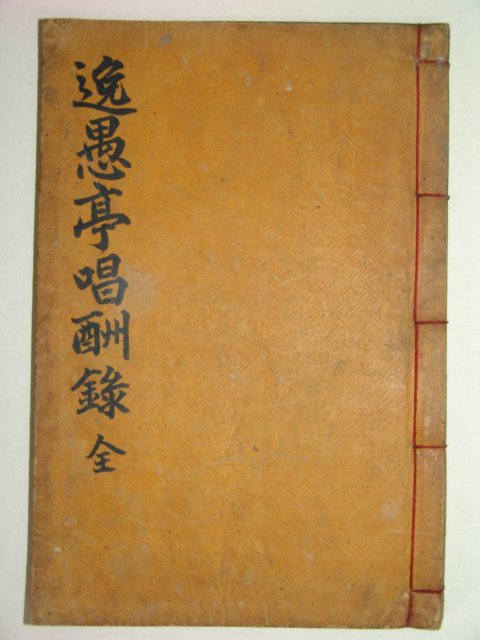 逸愚亭唱酬錄 全